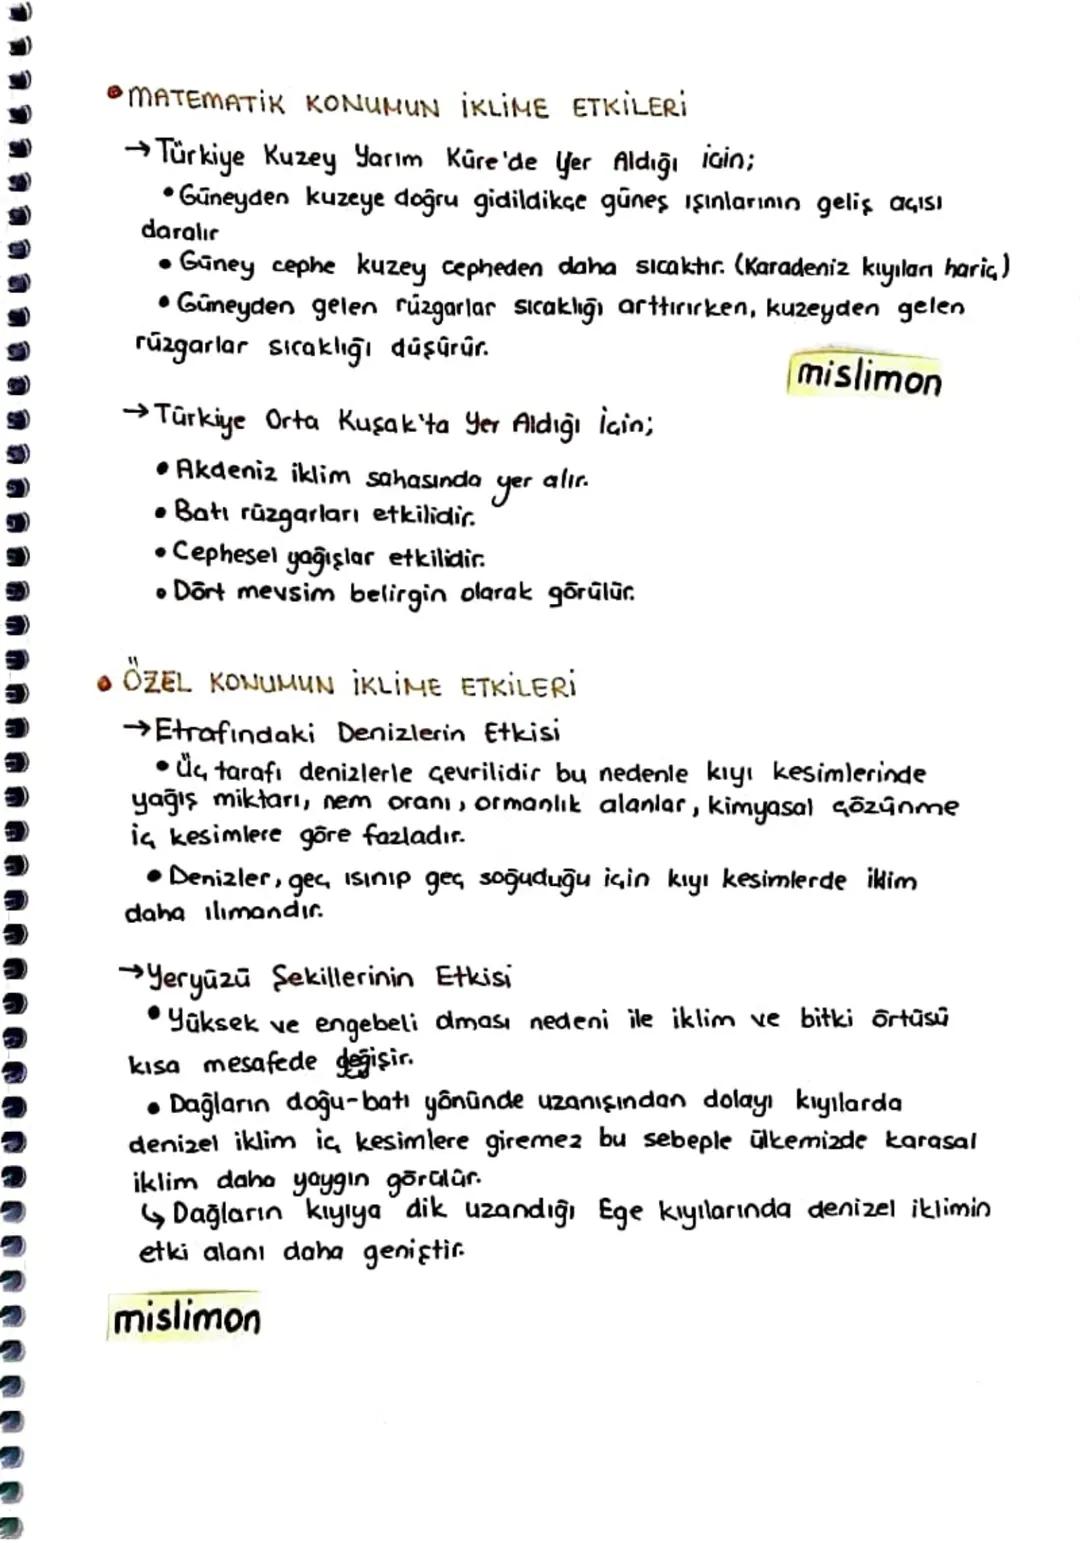 • MATEMATİK KONUMUN İKLİME ETKİLERİ
→ Türkiye Kuzey Yarım Küre'de Yer Aldığı için;
• Güneyden kuzeye doğru gidildikçe güneş ışınlarının geliş açısı
daralır
• Güney cephe kuzey cepheden daha sıcaktır. (Karadeniz kıyıları hariç)
• Güneyden gelen rüzgarlar sıcaklığı arttırırken, kuzeyden gelen
rüzgarlar sıcaklığı düşürür.
mislimon
→ Türkiye Orta Kuşak'ta Yer Aldığı İçin;
• Akdeniz iklim sahasında yer alır.
• Batı rüzgarları etkilidir.
• Cephesel yağışlar etkilidir.
• Dört mevsim belirgin olarak görülür.
• ÖZEL KONUMUN İKLİME ETKİLERİ
→ Etrafındaki Denizlerin Etkisi
• Üç tarafı denizlerle çevrilidir bu nedenle kıyı kesimlerinde
yağış miktarı, nem oranı, ormanlık alanlar, kimyasal çözünme
iç kesimlere göre fazladır.
• Denizler, geç ısınıp geç soğuduğu için kıyı kesimlerde iklim
daha ılımandır.
→ Yeryüzü Şekillerinin Etkisi
• Yüksek ve engebeli olması nedeni ile iklim ve bitki örtüsü
kısa mesafede değişir.
• Dağların doğu-batı yönünde uzanışından dolayı kıyılarda
denizel iklim iç kesimlere giremez bu sebeple ülkemizde karasal
iklim daha yaygın görülür.
↳ Dağların kıyıya dik uzandığı Ege kıyılarında denizel iklimin
etki alanı daha geniştir.
mislimon